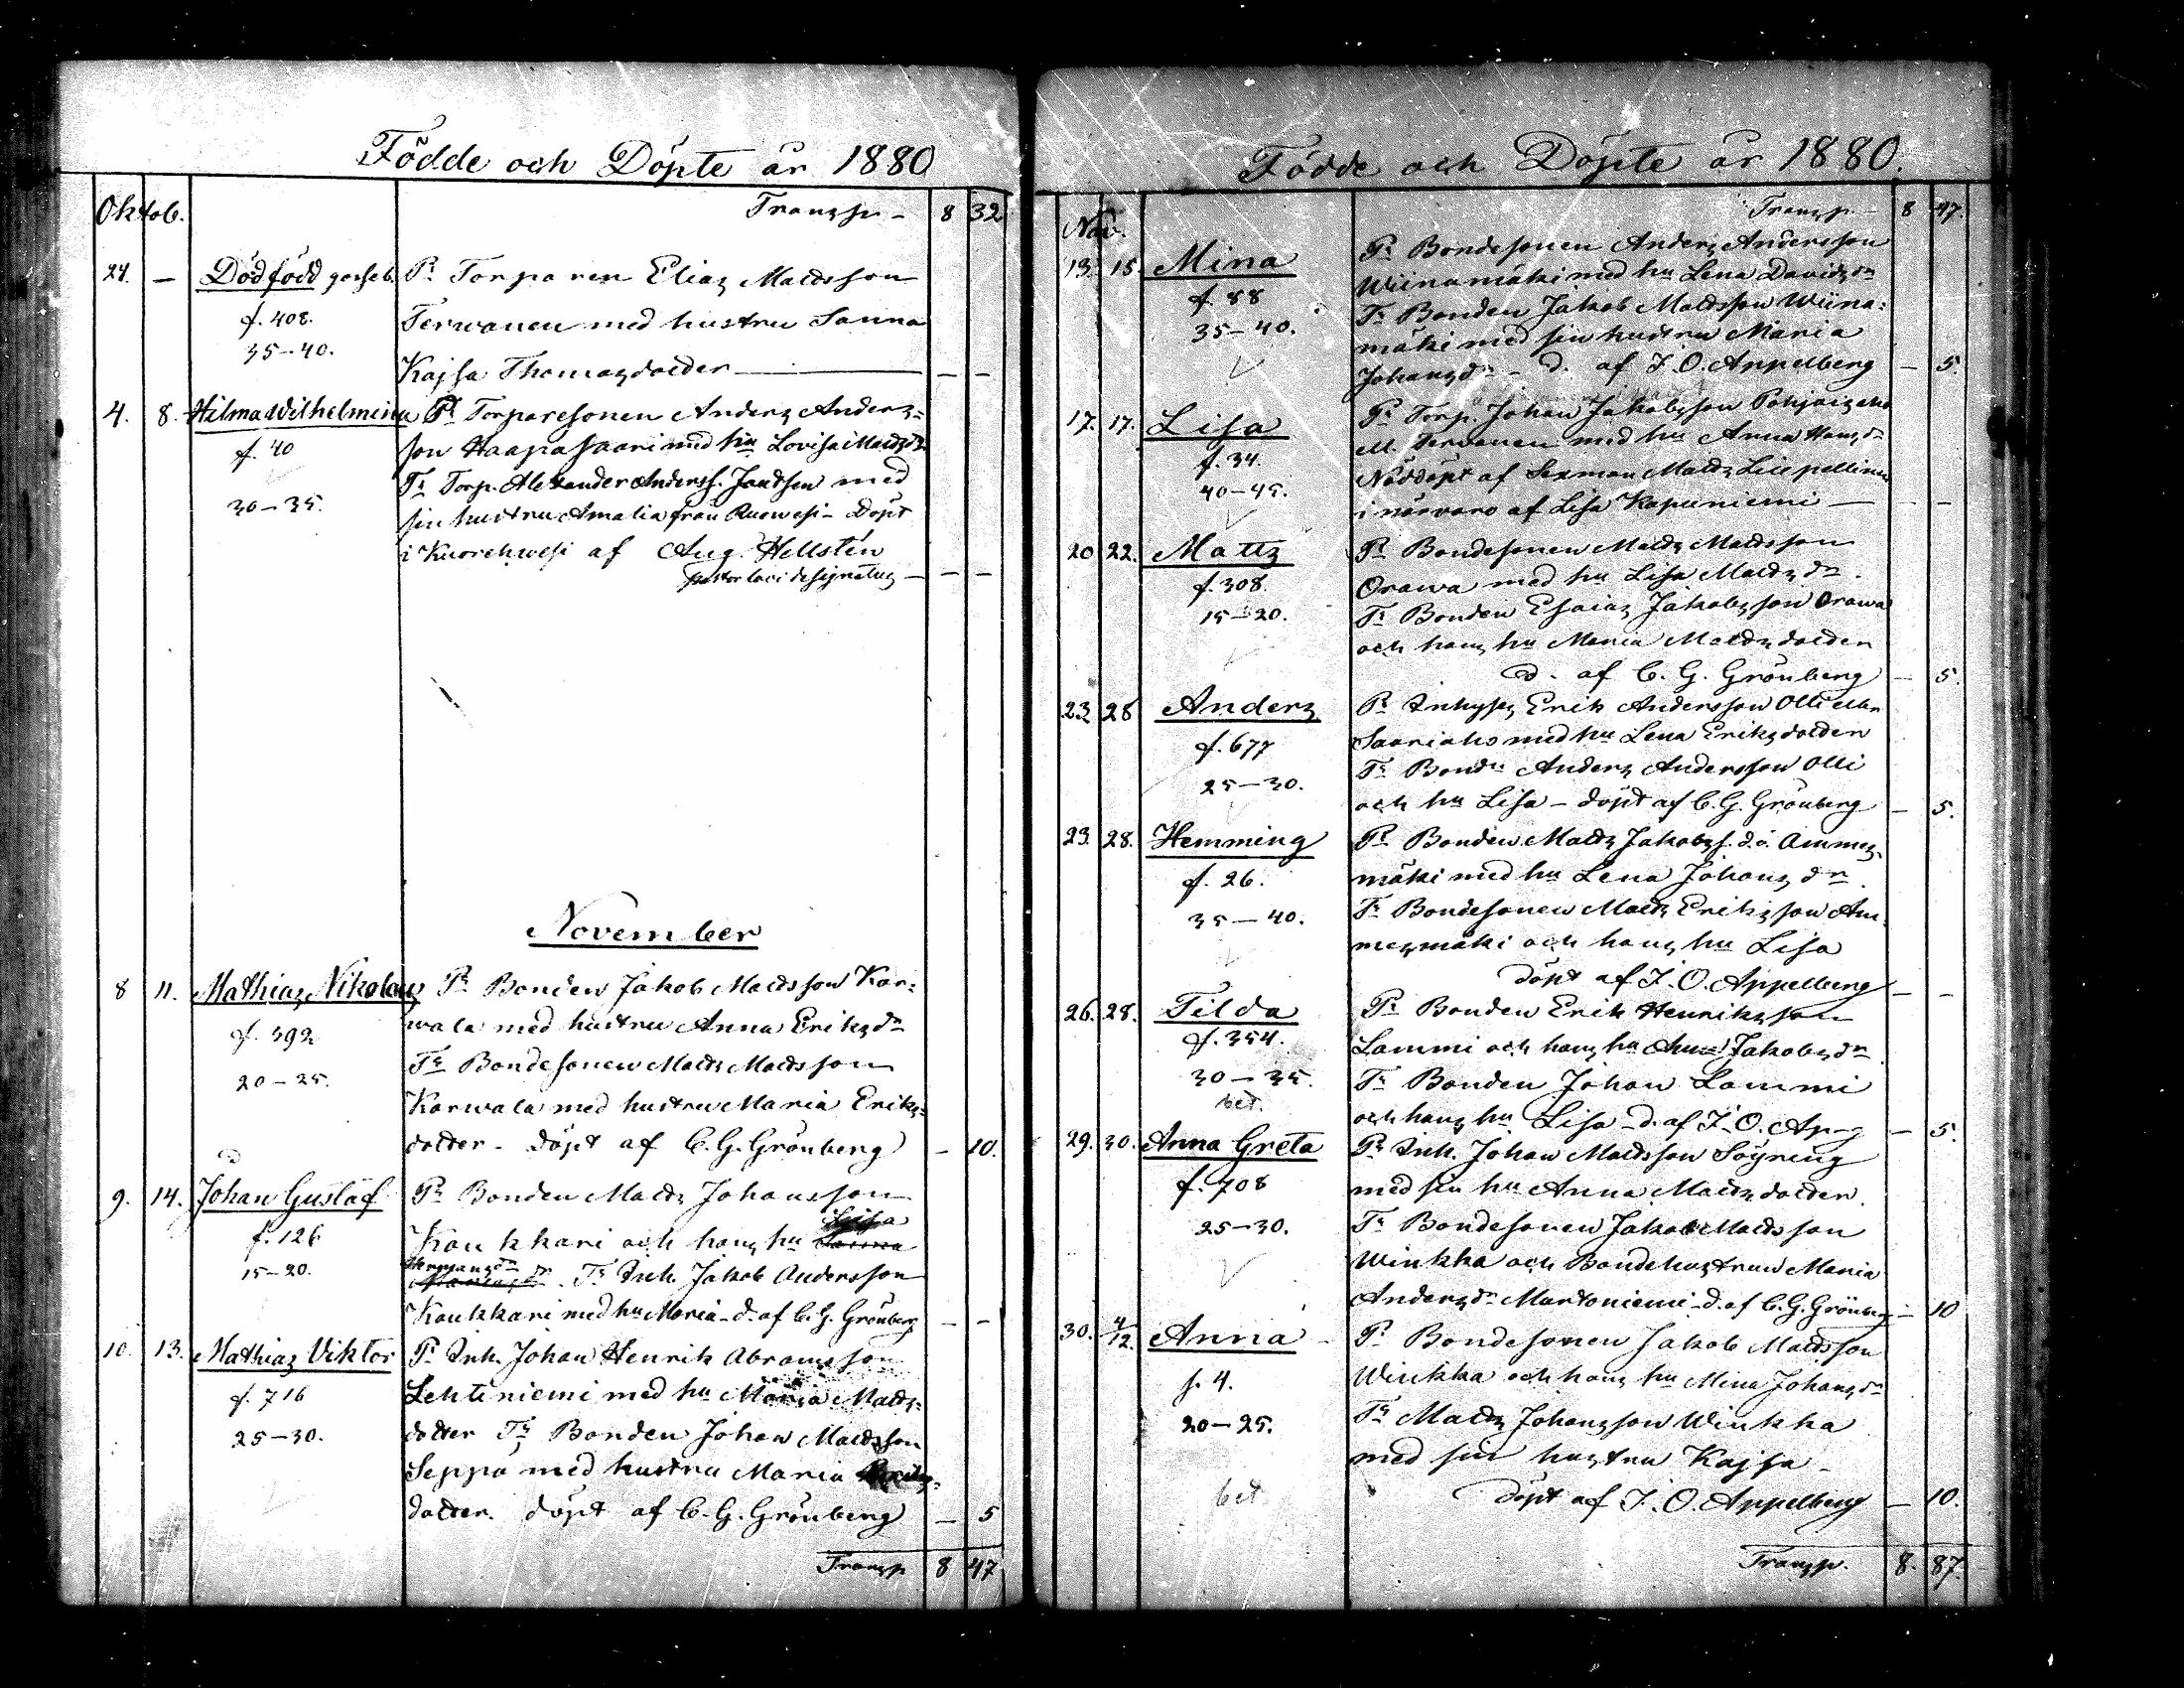 Födde och Döpte år 1880
Oktob. Transp - 8 32
24. - Dödfödd gosseb. Pr Torparen Elias Mattsson
f. 408. Terwanen med hustru Sanna
35-40. Kajsa Thomasdotter - -
4. 8. Hilma Wilhelmina Pr Torparesonen Anders Anders=
f. 40 son Haapasaari med hu Lovisa Mattsdr
Tr Torp. Alexander Anderss. Jandsen med
30-35. sin hustru Amalia från Ruowesi - Döpt
i Kuorehwesi af Aug. Hellstén
pastor loci designatus - - -
November
8 11. Mathias Nikolaus Pr Bonden Jakob Mattsson Kar=
f. 392 wala med hustru Anna Eriksdr
20-25. Tr Bondesonen Matts Mattsson
Karwala med hustru Maria Eriks=
dotter - döpt af C. G. Grönberg - 10.
9. 14. Johan Gustaf Pr Bonden Matts Johansson
f. 126 Koukkari och hans hu Lisa
15-20. Hermansdr Tr Inh. Jakob Andersson
Koukkari med hu Maria - d. af C. G. Grönberg - -
10. 13. Mathias Viktor Pr Inh. Johan Henrik Abramsson
f. 716 Lehtiniemi med hu Maria Matts=
25-30. dotter Tr Bonden Johan Mattsson
Seppä med hustru Maria
dotter. döpt af C. G. Grönberg - 5
Transp 8 47
Födde och Döpte år 1880.
Nov. Transp. - 8 47.
13. 15 Mina Pr Bondesonen Anders Andersson
f. 88 Wiinamäki med hu Lena Davidsdr
35-40. Tr Bonden Jakob Mattsson Wiina=
mäki med sin hustru Maria
Johansdr - d. af J. O. Appelberg - 5.
17. 17. Lisa Pr Torp. Johan Jakobsson Pohjois
f. 34. M. Terwanen med hu Anna Hansdr
40-45. Nöddöpt af Sexman Matts
i närvaro af Lisa Kapuniemi - -
20 22. Matts Pr Bondesonen Matts Mattsson
f. 308. Orawa med hu Lisa Mattsdr.
15-20. Tr Bonden Esaias Jakobsson Orawa
och hans hu Maria Mattsdotter
d. af C. G. Grönberg - 5.
23 28 Anders Pr Inhyses Erik Andersson Olli
f. 677 Saariaho med hu Lena Eriksdotter
25-30. Tr Bondn Anders Andersson Olli
och hu Lisa - döpt af C. G. Grönberg - 5.
23. 28. Hemming Pr Bonden Matts Jakobss. d.ö. Ammes=
f. 26. mäki med hu Lena Johansdr.
35-40. Tr Bondesonen Matts Eriksson Am=
mesmäki och hans hu Lisa
döpt af J. O. Appelberg - -
26. 28. Tilda Pr Bonden Erik Henriksson
f. 354. Lammi och hans hu Anna Jakobsdr
30-35. Tr Bonden Johan Lammi
bet. och hans hu Lisa - d. af J. O. Ap-g - 5.
29. 30. Anna Greta Pr Inh. Johan Mattsson Söyring
f. 708 med sin hu Anna Mattsdotter.
25-30. Tr Bondesonen Jakob Mattsson
Winkka och Bondehustrun Maria
Andersdr Martoniemi - d. af C. G. Grönberg - 10
30. 4/12. Anna Pr Bondesonen Jakob Mattsson
f. 4. Winkka och hans hu Mina Johansdr
20-25. Tr Matts Johansson Winkka
med sin hustru Kajsa -
bet döpt af J. O. Appelberg - 10.
Transp. 8. 87.